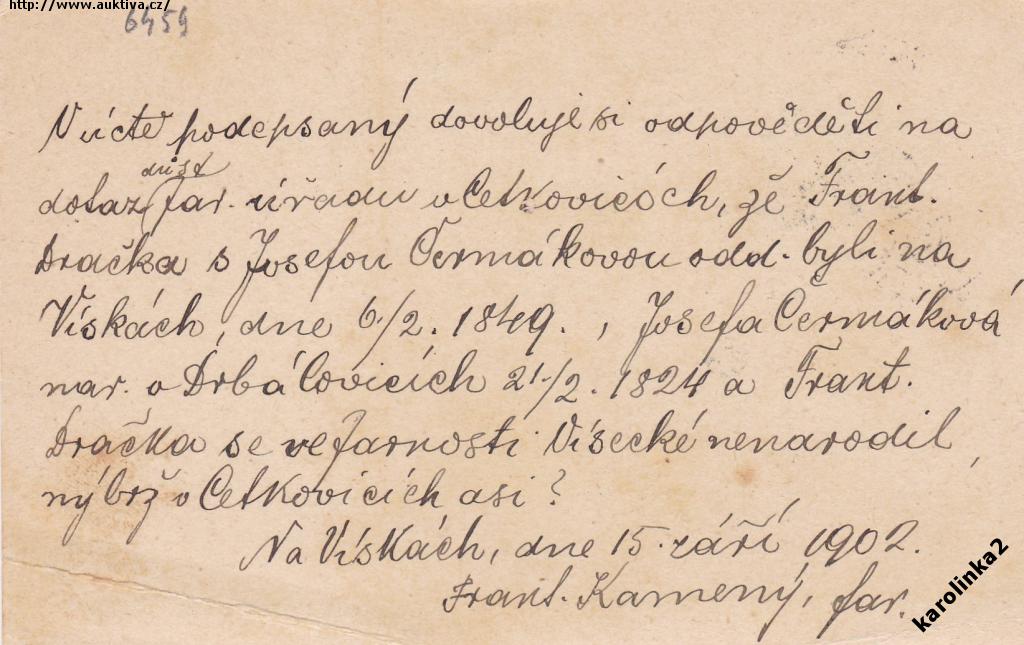 http://www.auktiva.cz/
6459
V úctě podepsaný dovoluje si odpověděti na
důst
dotaz far. úřadu v Cetkovicích, že Frant.
Dračka s Josefou Čermákovou odd. byli na
Vískách, dne 6/2. 1849., Josefa Čermáková
nar. v Drbálovicích 21/2. 1824 a Frant.
Dračka se ve farnosti Vísecké nenarodil,
nýbrž v Cetkovicích asi?
Na Vískách, dne 15. září 1902.
Frant. Kamený, far.
karolinka2